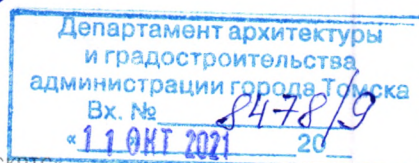 Департамент архитектуры
и градостроительства
администрации города Томска
Вх. № 8478/9
«11 ОКТ 2021 20